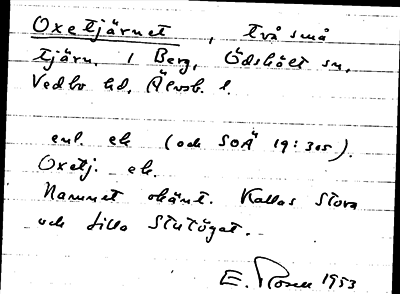 Oxetjärnet, två små
tjärn. i Berg, Ödskölt sn,
Vedbo hd, Älvsb. l.
enl. ek (och SOÄ 19:305).
Oxetj. ek.
Namnet okänt. Kallas Stora
och Lilla Stutögat.
E. Rosell 1953